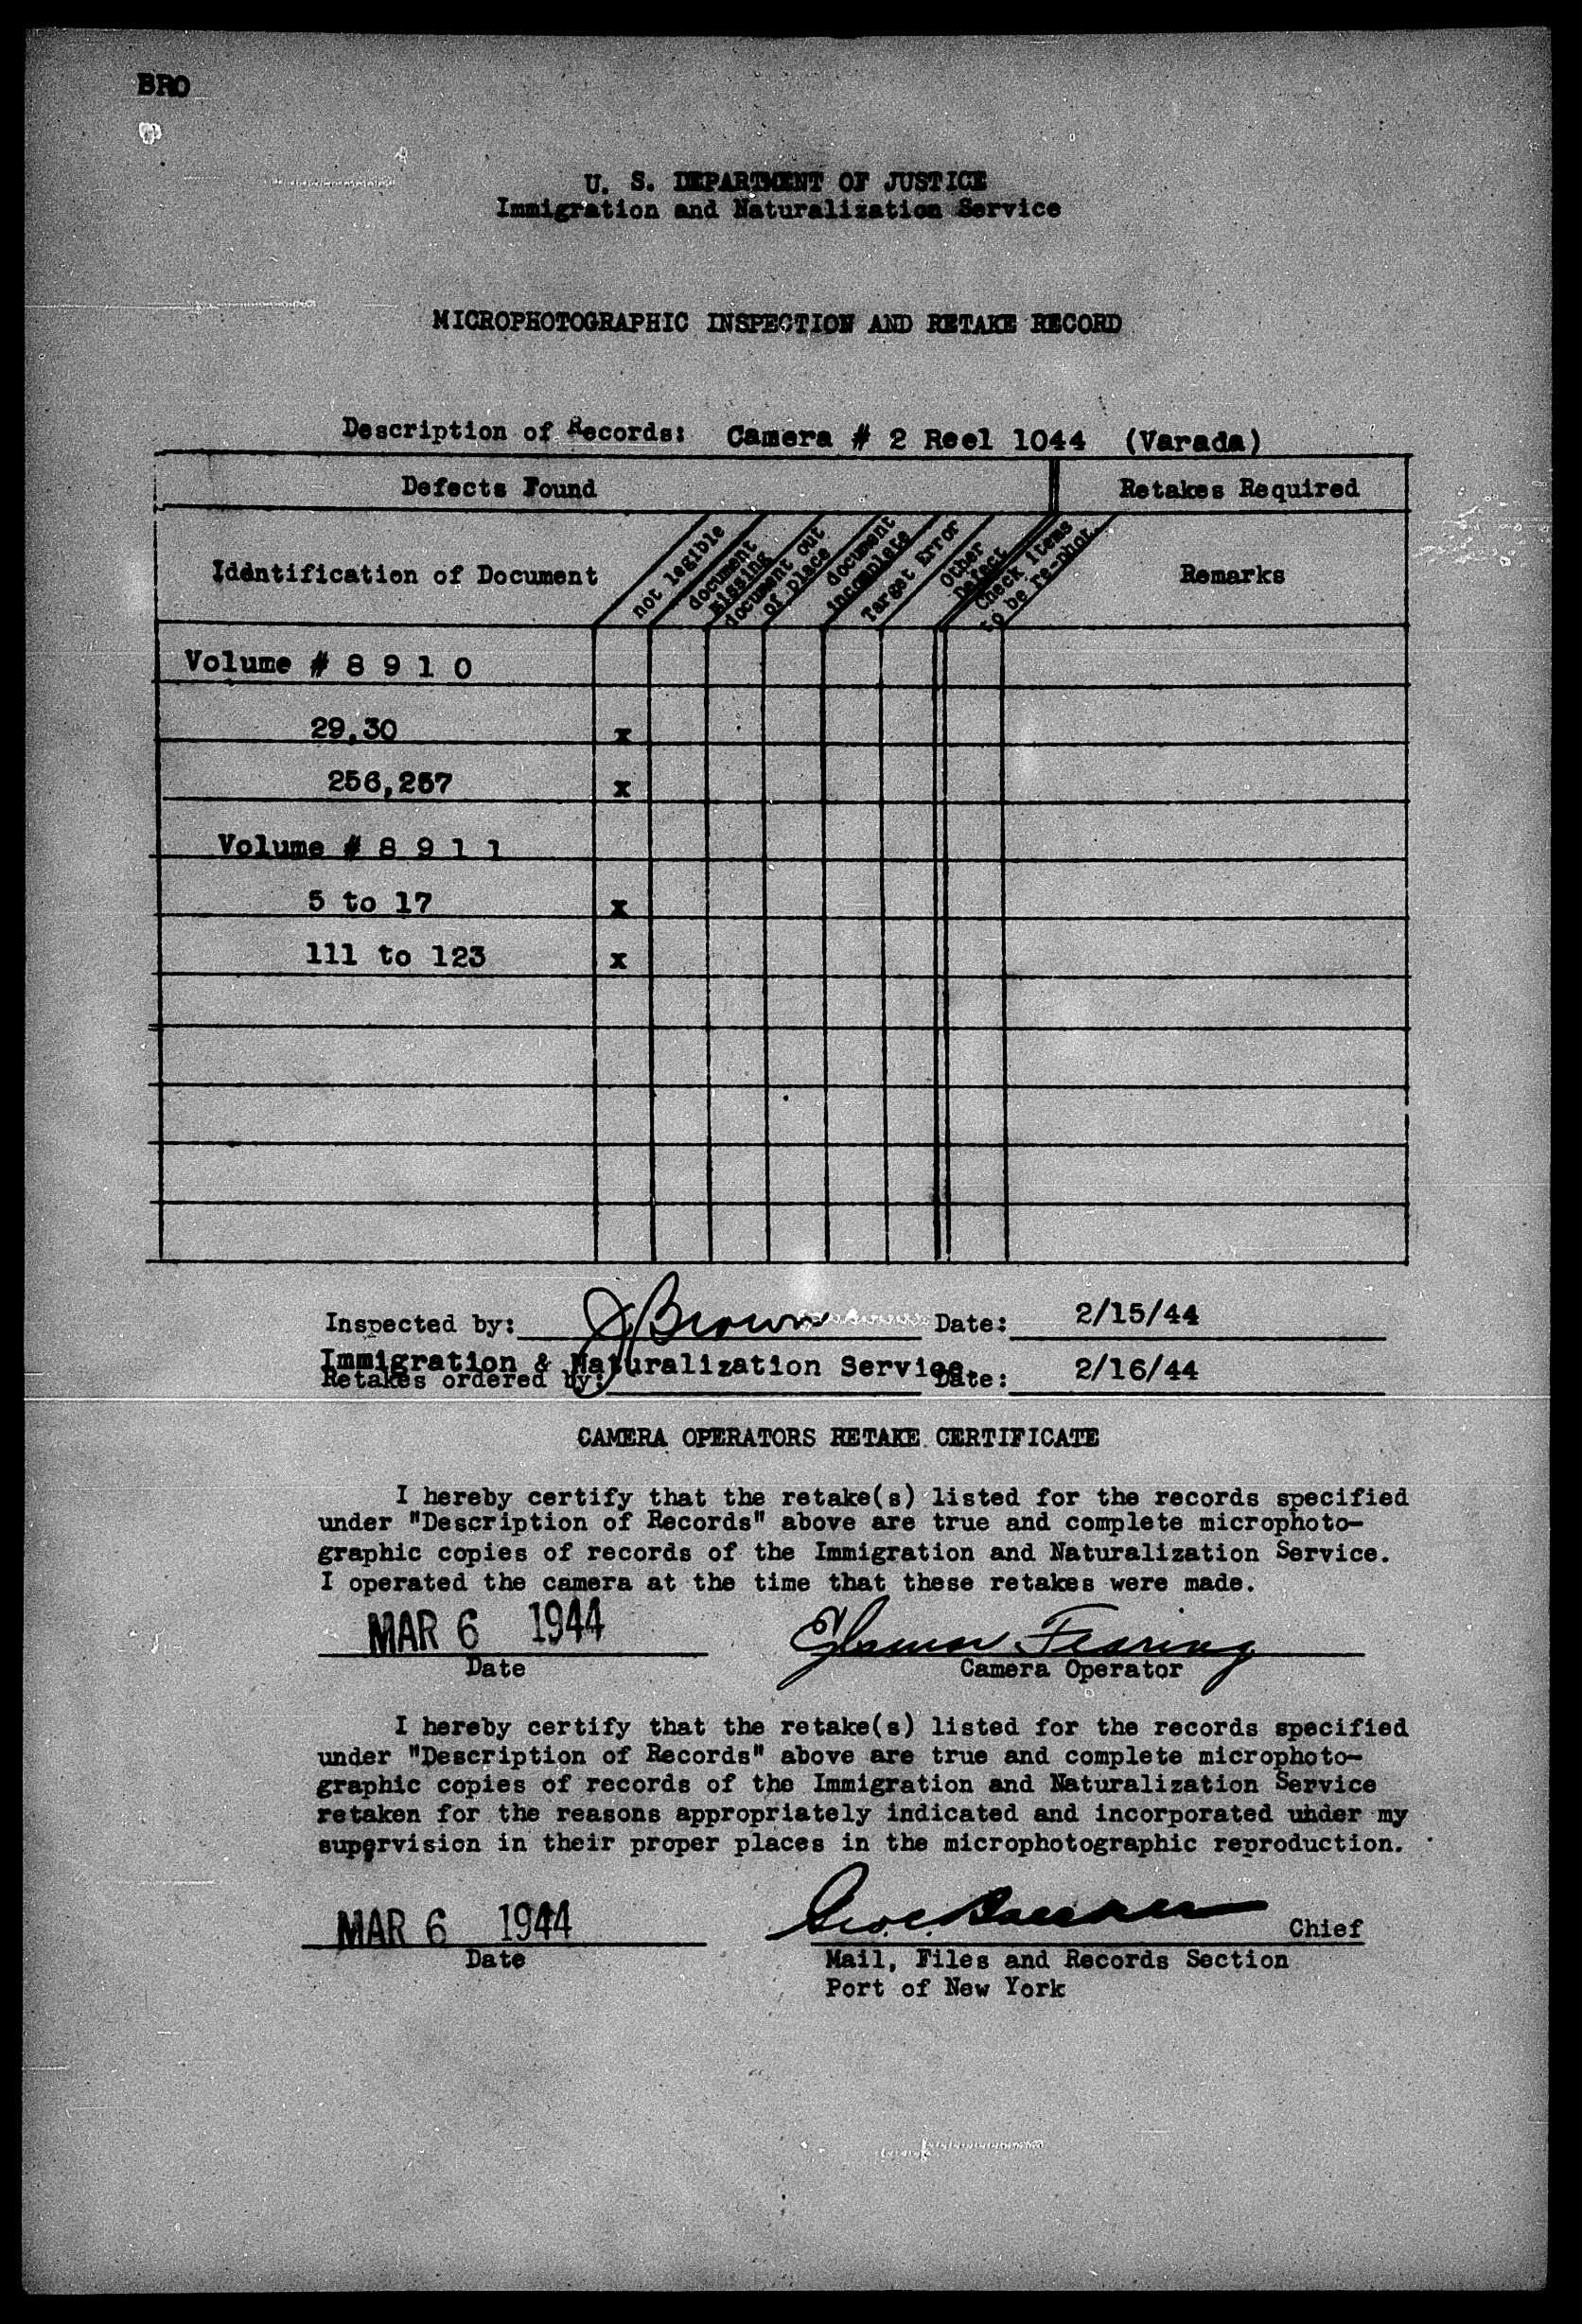 BRO
U. S. DEPARTMENT OF JUSTICE
Immigration and Naturalization Service
MICROPHOTOGRAPHIC INSPECTION AND RETAKE RECORD
Description of Records: Camera # 2 Reel 1044 (Varada)
Defects Found Retakes Required
Identification of Document not legible document missing document out of place document incomplete Target Error Other Defect Check items to be re-phot. Remarks
Volume # 8 9 1 0
29,30 x
256,257 x
Volume # 8 9 1 1
5 to 17 x
111 to 123 x
Inspected by: J Brown Date: 2/15/44
Immigration & Naturalization Service
Retakes ordered by: Date: 2/16/44
CAMERA OPERATORS RETAKE CERTIFICATE
I hereby certify that the retake(s) listed for the records specified
under "Description of Records" above are true and complete microphoto-
graphic copies of records of the Immigration and Naturalization Service.
I operated the camera at the time that these retakes were made.
MAR 6 1944
Date Camera Operator
I hereby certify that the retake(s) listed for the records specified
under "Description of Records" above are true and complete microphoto-
graphic copies of records of the Immigration and Naturalization Service
retaken for the reasons appropriately indicated and incorporated under my
supervision in their proper places in the microphotographic reproduction.
MAR 6 1944 Chief
Date Mail, Files and Records Section
Port of New York